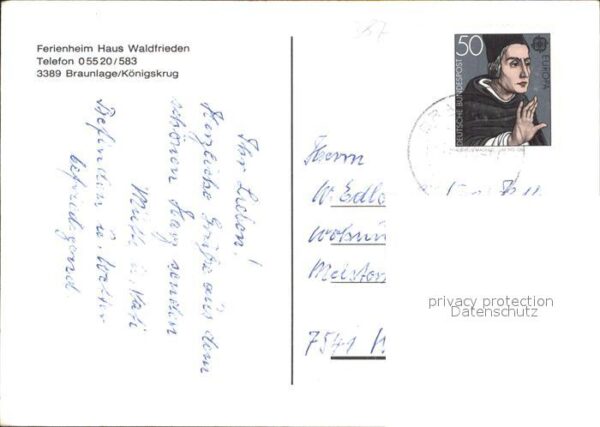 Ferienheim Haus Waldfrieden
Telefon 0 55 20 / 583
3389 Braunlage/Königskrug
Ihr Lieben!
Herzliche Grüße aus dem
schönen Harz senden
Mutti u. Vati
Befinden u. Wetter
befriedigend
50
DEUTSCHE BUNDESPOST
EUROPA
Herrn
W.
7541
privacy protection
Datenschutz